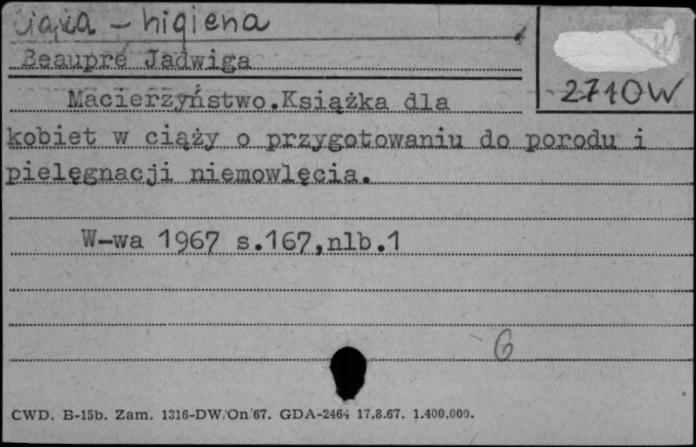 Ciąża - higiena
Beaupré Jadwiga
2710W
Macierzyństwo.Książka dla
kobiet w ciąży o przygotowaniu do porodu i
pielęgnacji niemowlęcia.
W-wa 1967 s.167,nlb.1
6
CWD. B-15b. Zam. 1316-DW/On/67. GDA-2464 17.8.67. 1.400.000.